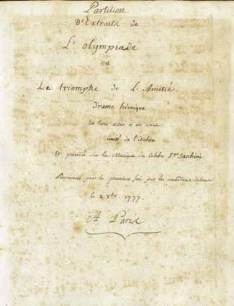 Partition
D'Extraits de
L'olympiade
ou
Le triomphe de L'Amitié
Drame héroïque
en trois actes et en vers
imité de l'italien
et parodié sur la Musique du célèbre Sr. Sacchini
Représenté pour la première fois par les
le 2 8bre 1777.
A Paris